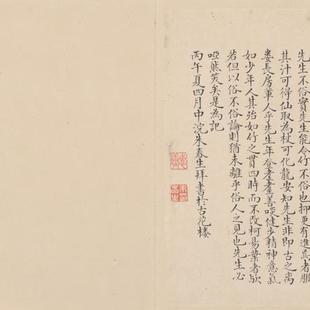 先生不俗實先生能令竹不俗也抑更有進焉者聞
其汁可得仙取為杖可化龍安知先生非即古之壺
婁長房輩人乎先生年登耄耋善啖健步精神意氣
如少年人其殆如竹之貫四時而不改柯易葉者歟
若但以俗不俗論則猶未離乎俗人之見也先生必
啞然笑矣是為記
丙午夏四月中浣朱春生拜書於古花樓